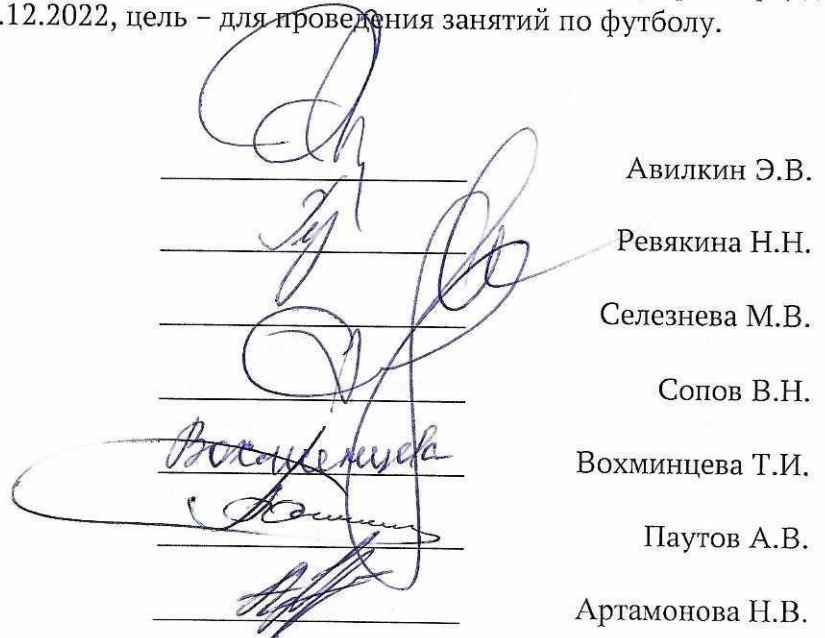 .12.2022, цель – для проведения занятий по футболу.
Авилкин Э.В.
Ревякина Н.Н.
Селезнева М.В.
Сопов В.Н.
Вохминцева Вохминцева Т.И.
Паутов А.В.
Артамонова Н.В.